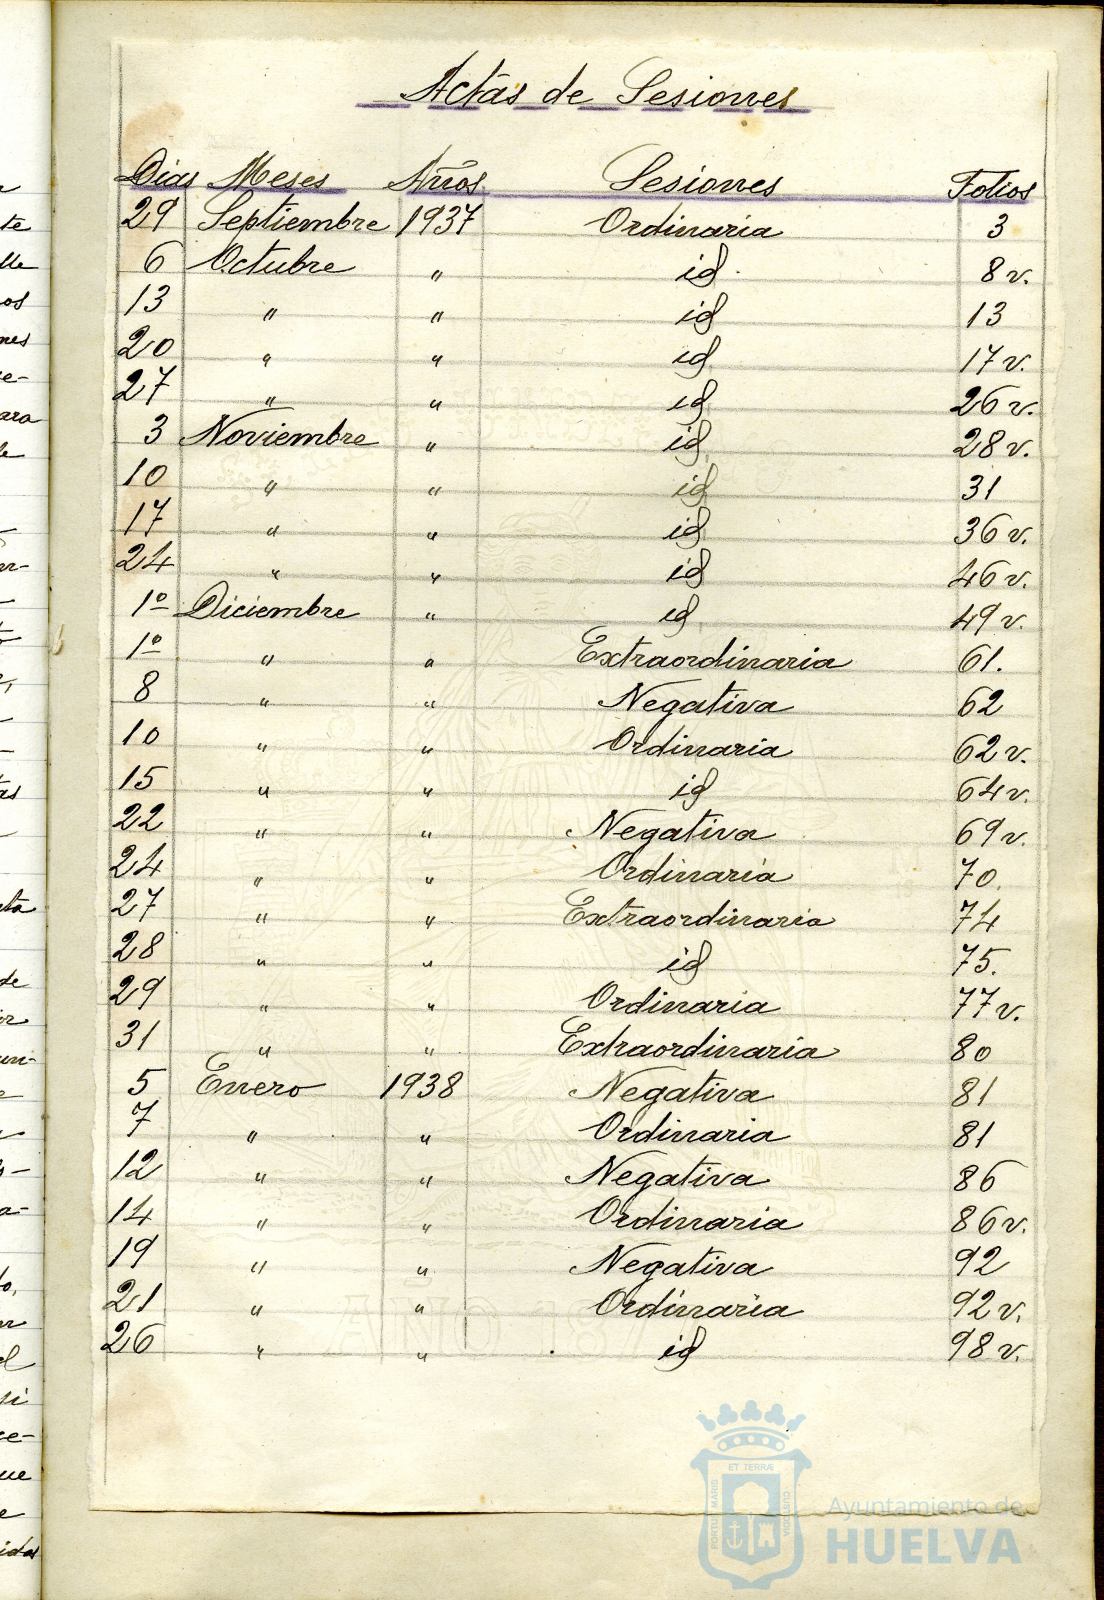 Actas de Sesiones
Dias Meses Años Sesiones Folios
29 Septiembre 1937 Ordinaria 3
6 Octubre " id. 8 v.
13 " " id 13
20 " " id. 17 v.
27 " " id 26 v.
3 Noviembre " id. 28 v.
10 " " id 31
17 " " id. 36 v.
24 " " id 46 v.
1º Diciembre " id. 49 v.
1º " " Extraordinaria 61.
8 " " Negativa 62
10 " " Ordinaria 62 v.
15 " " id 64 v.
22 " " Negativa 69 v.
24 " " Ordinaria 70.
27 " " Extraordinaria 74
28 " " id 75.
29 " " Ordinaria 77 v.
31 " " Extraordinaria 80
5 Enero 1938 Negativa 81
7 " " Ordinaria 81
12 " " Negativa 86
14 " " Ordinaria 86 v.
19 " " Negativa 92
21 " " Ordinaria 92 v.
26 " " id 98 v.
ET TERRÆ
PORTUS MARIS
CUSTODIA
Ayuntamiento de
HUELVA